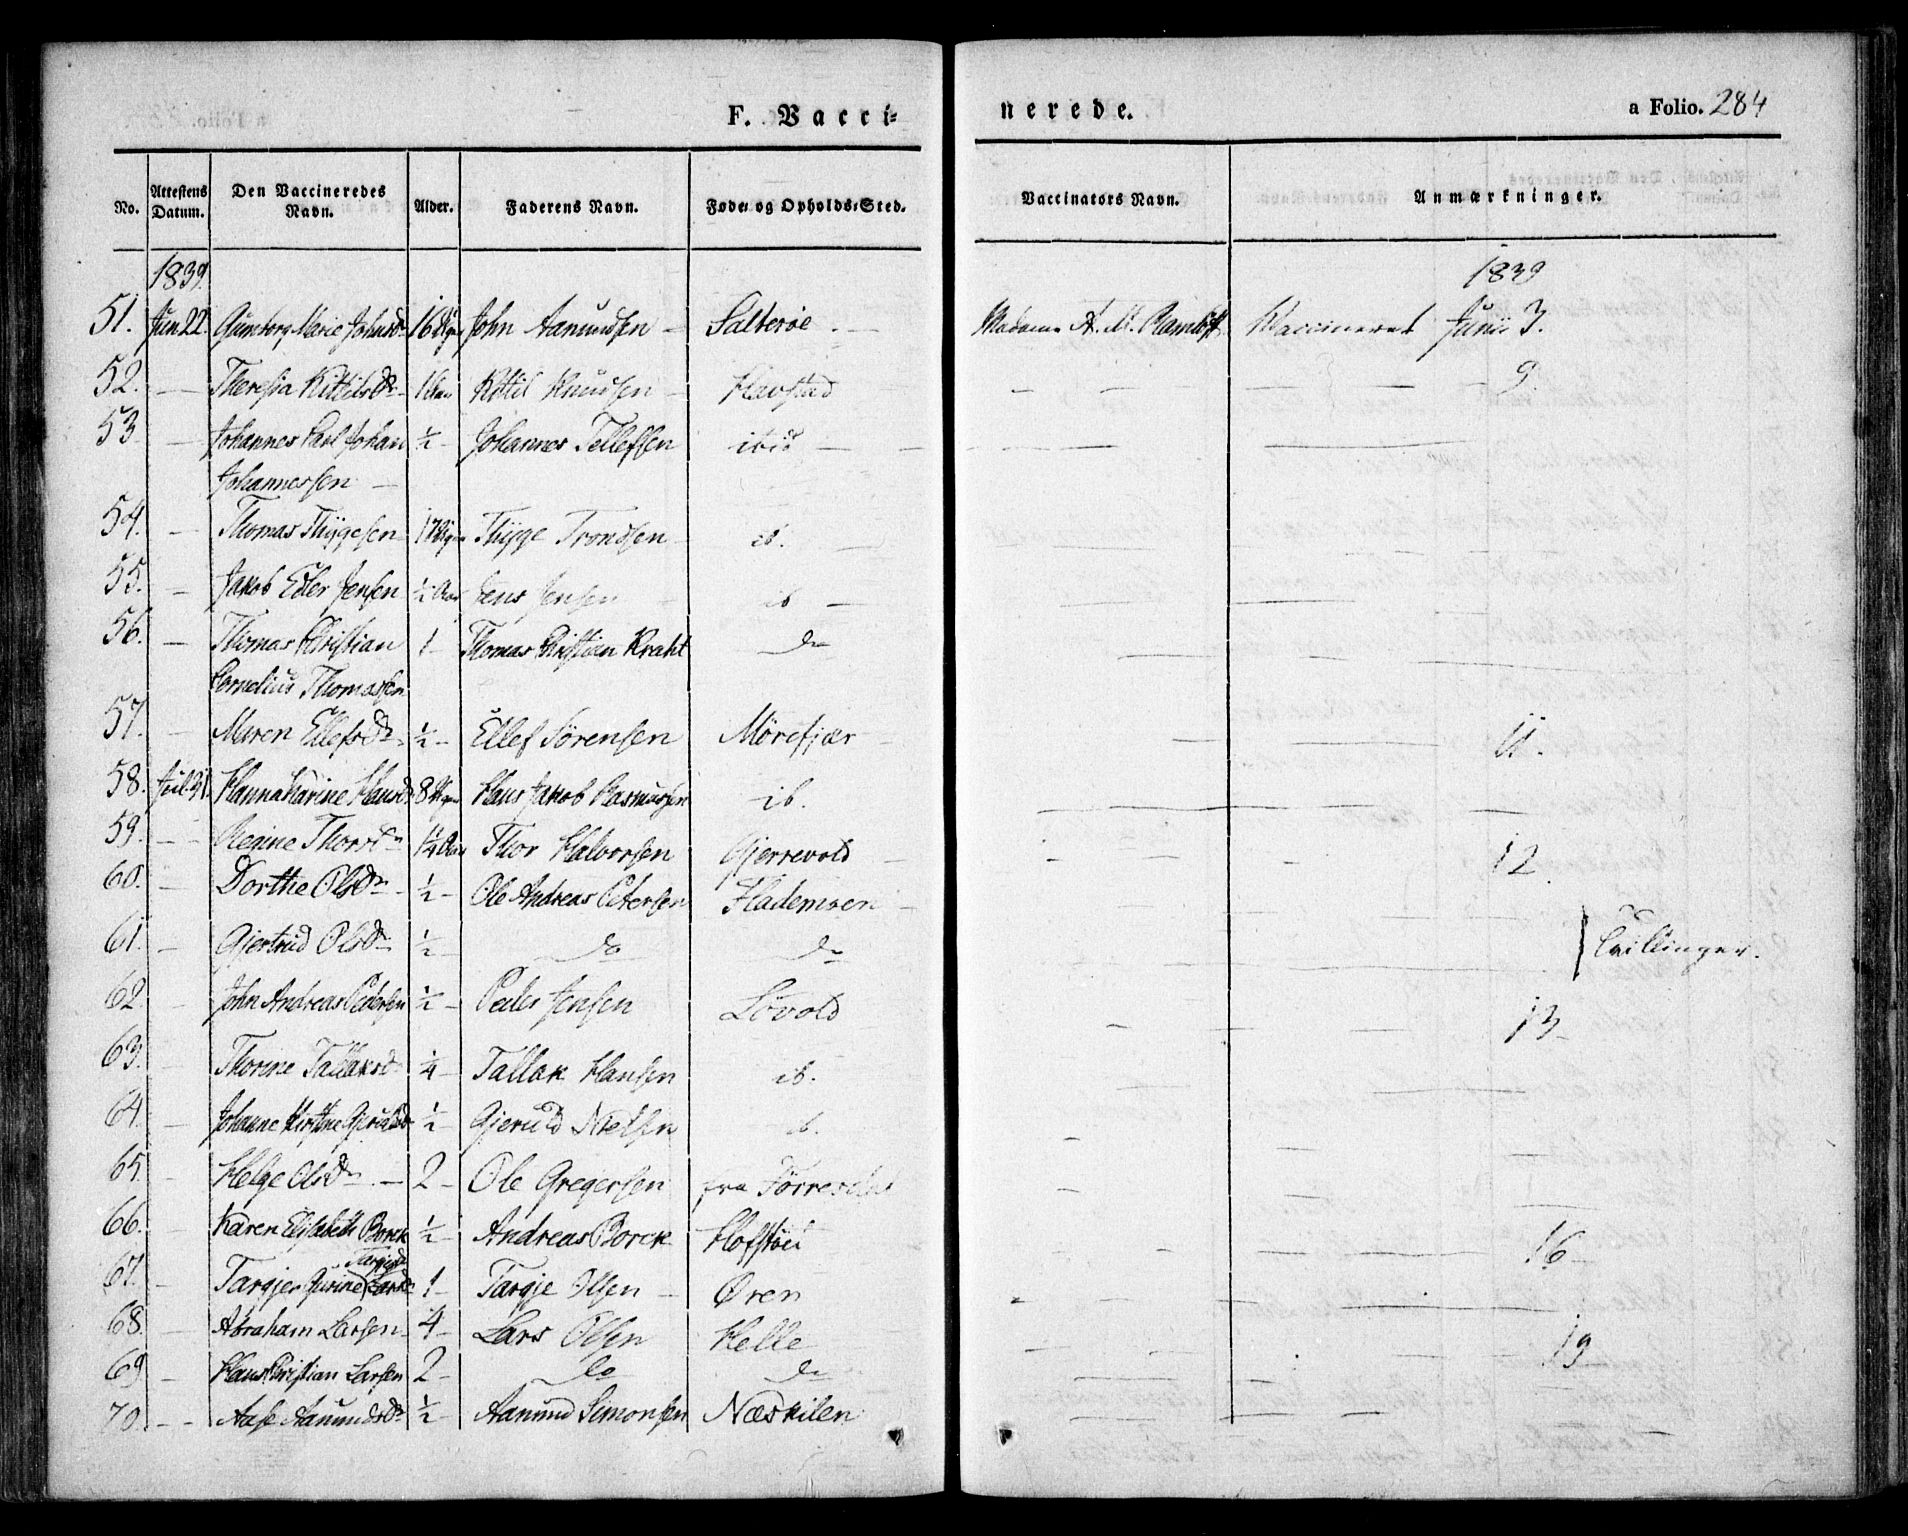 F. Vacci-
nerede.
a Folio. 284
No. | Attestens Datum. | Den Vaccineredes Navn. | Alder. | Faderens Navn. | Føde- og Opholds-Sted. | Vaccinators Navn. | Anmærkninger.
1839. | 1839
51. | Jun 22. | Gunborg Marie Johnsd | 16 Ugr | John Aanundsen – | Salterøe – | Madame A. M. | Vaccineret Junii 3.
52. | — | Theresia Kittilsdr | 1 Aar | Kittil Knudsen – | Havstad | – – | – – 9.
53 | — | Johannes Carl Johan | ½ – | Johannes Tellefsen | ibid – | — | —
Johannessen –
54. | – | Thomas Thygesen | 17 Ugr | Thyge Trondsen | ib. – | — | —
55. | – | Jakob Edler Jensen | ½ Aar | Jens Jensen – | ib – | — | —
56. | — | Thomas Christian | 1 – | Thomas Christian Kraht | do | — | —
Cornelius Thomassen
57. | – | Maren Ellefsdr | ½ – | Ellef Sørensen | Mørefjær – | — | – 11.
58. | Jul. 31. | Hanna Karine Hansd | 8 Ugr | Hans Jakob Rasmussen | ib. | — | —
59. | – – | Regine Thorsdr | 1¼ Aar | Thor Halvorsen | Gjerrevold – | – | – 12.
60. | — | Dorthe Olsdr – | ½ – | Ole Andreas Petersen | Flademoen – | — | —
61. | – | Gjertrud Olsdr | ½ – | do | do | — | — Tvillinger.
62. | – | John Andreas Pedersen | ½ – | Peder Jensen | Løvold | – | – 13
63. | – | Thorine Tallaksd | ¼ – | Tallak Hansen | ib. | — | —
64. | – | Johanne Kirstine | ½ – | Gjeruld Nielsen | ib. | – | —
65. | – | Helge Olsdr. – | 2 – | Ole Gregersen | fra | – | —
66. | – | Karen Elisabeth Borck | ½ – | Andreas Borck | | – | – 16 –
Targjesd
67. | – | Targjer Gurine Larsd | 1 – | Targje Olsen – | Øren | – | —
68. | – | Abraham Larsen – | 4 – | Lars Olsen | Helle | – | – 19
69 | – | Hans Christian Larsen | 2 – | do | do | — | —
70. | – – | Aase Aanundsdr | ½ – | Aanund Simonsen | Næskilen | — | —